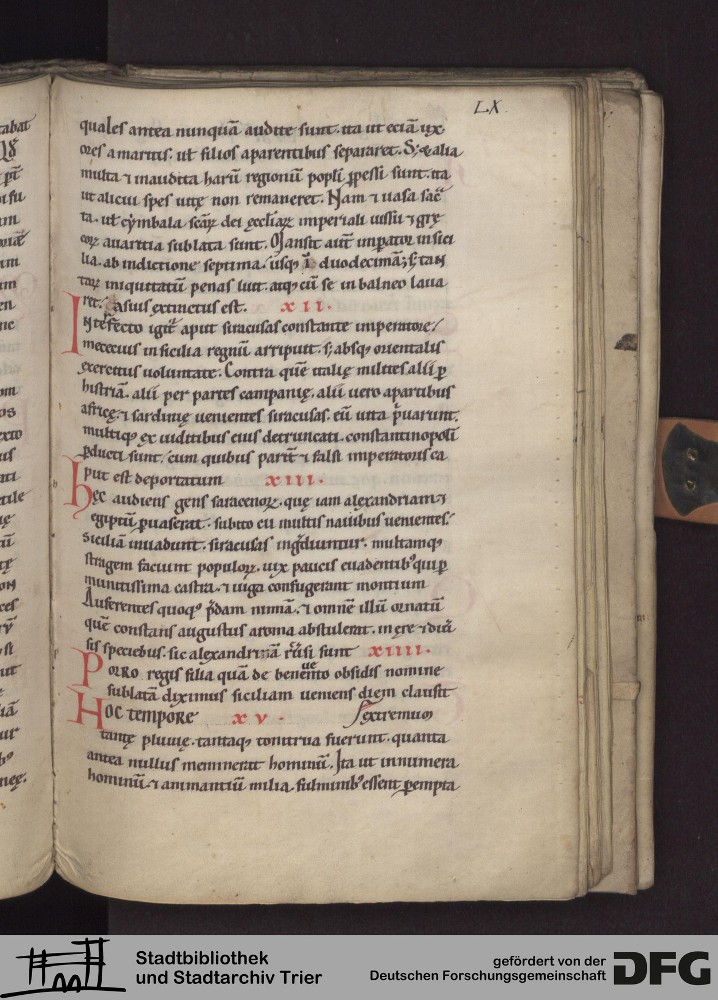 LX
quales antea nunquā audite sunt. ita ut eciā ux
ores a maritis. uł filios aparentibus separaret. S; & alia
multa ⁊ inaudita harū regionū popłi ꝑpessi sunt. ita
ut alicui spes uitę non remaneret. Nam ⁊ uasa sac̄
ta. uł cẏmbala scāꝝ dei ęccłiaꝝ imperiali iussu ⁊ grę
coꝝ auaricia sublata sunt. Mansit aut̄ imꝑator in sici
lia. ab indictione septima. usqꝫ ī duodecimā; s; tan
taꝝ iniquitatū penas luit. atqꝫ cū se in balneo laua
ret. asuis extinctus est. XII.
Interfecto igit̄ aput siracusas constante imperatore.
mececius in sicilia regnū arripuit. s; absqꝫ orientalis
exercitus uoluntate. Contra quē italię milites alii ꝑ
histriā. alii per partes campanię. alii uero apartibus
africę. ⁊ sardinię uenientes siracusas. eū uita p̄uarunt.
multiqꝫ ex iudicibus eius detruncati. constantinopolī
ꝑducti sunt. cum quibus parit̄ ⁊ falsi imperatoris ca
put est deportatum XIII.
Hęc audiens gens saracenoꝝ. quę iam alexandriam ⁊
egiptū ꝑuaserat. subito cū multis nauibus uenientes.
siciliā inuadunt. siracusas ingᵈiuntur. multamqꝫ
stragem faciunt populoꝝ. uix paucis euadentibꝫ qui ꝑ
munitissima castra. ⁊ iuga confugerant montium
Auferentes quoqꝫ p̄dam nimiā. ⁊ omnē illū ornatū
quē constans augustus aroma abstulerat. in ęre ⁊ diū
sis speciebus. sic alexandriā r̄ūsi sunt XIIII.
Porro regis filia quā de beneuento obsidis nomine
sublatā diximus siciliam ueniens diem clausit
Hoc tempore XV. extremum
tantę pluuię. tantaqꝫ tonitrua fuerunt. quanta
antea nullus meminerit hominū. Ita ut innumera
hominū. ⁊ animantiū milia. fulminibꝫ essent ꝑempta
Stadtbibliothek
und Stadtarchiv Trier
gefördert von der
Deutschen Forschungsgemeinschaft
DFG